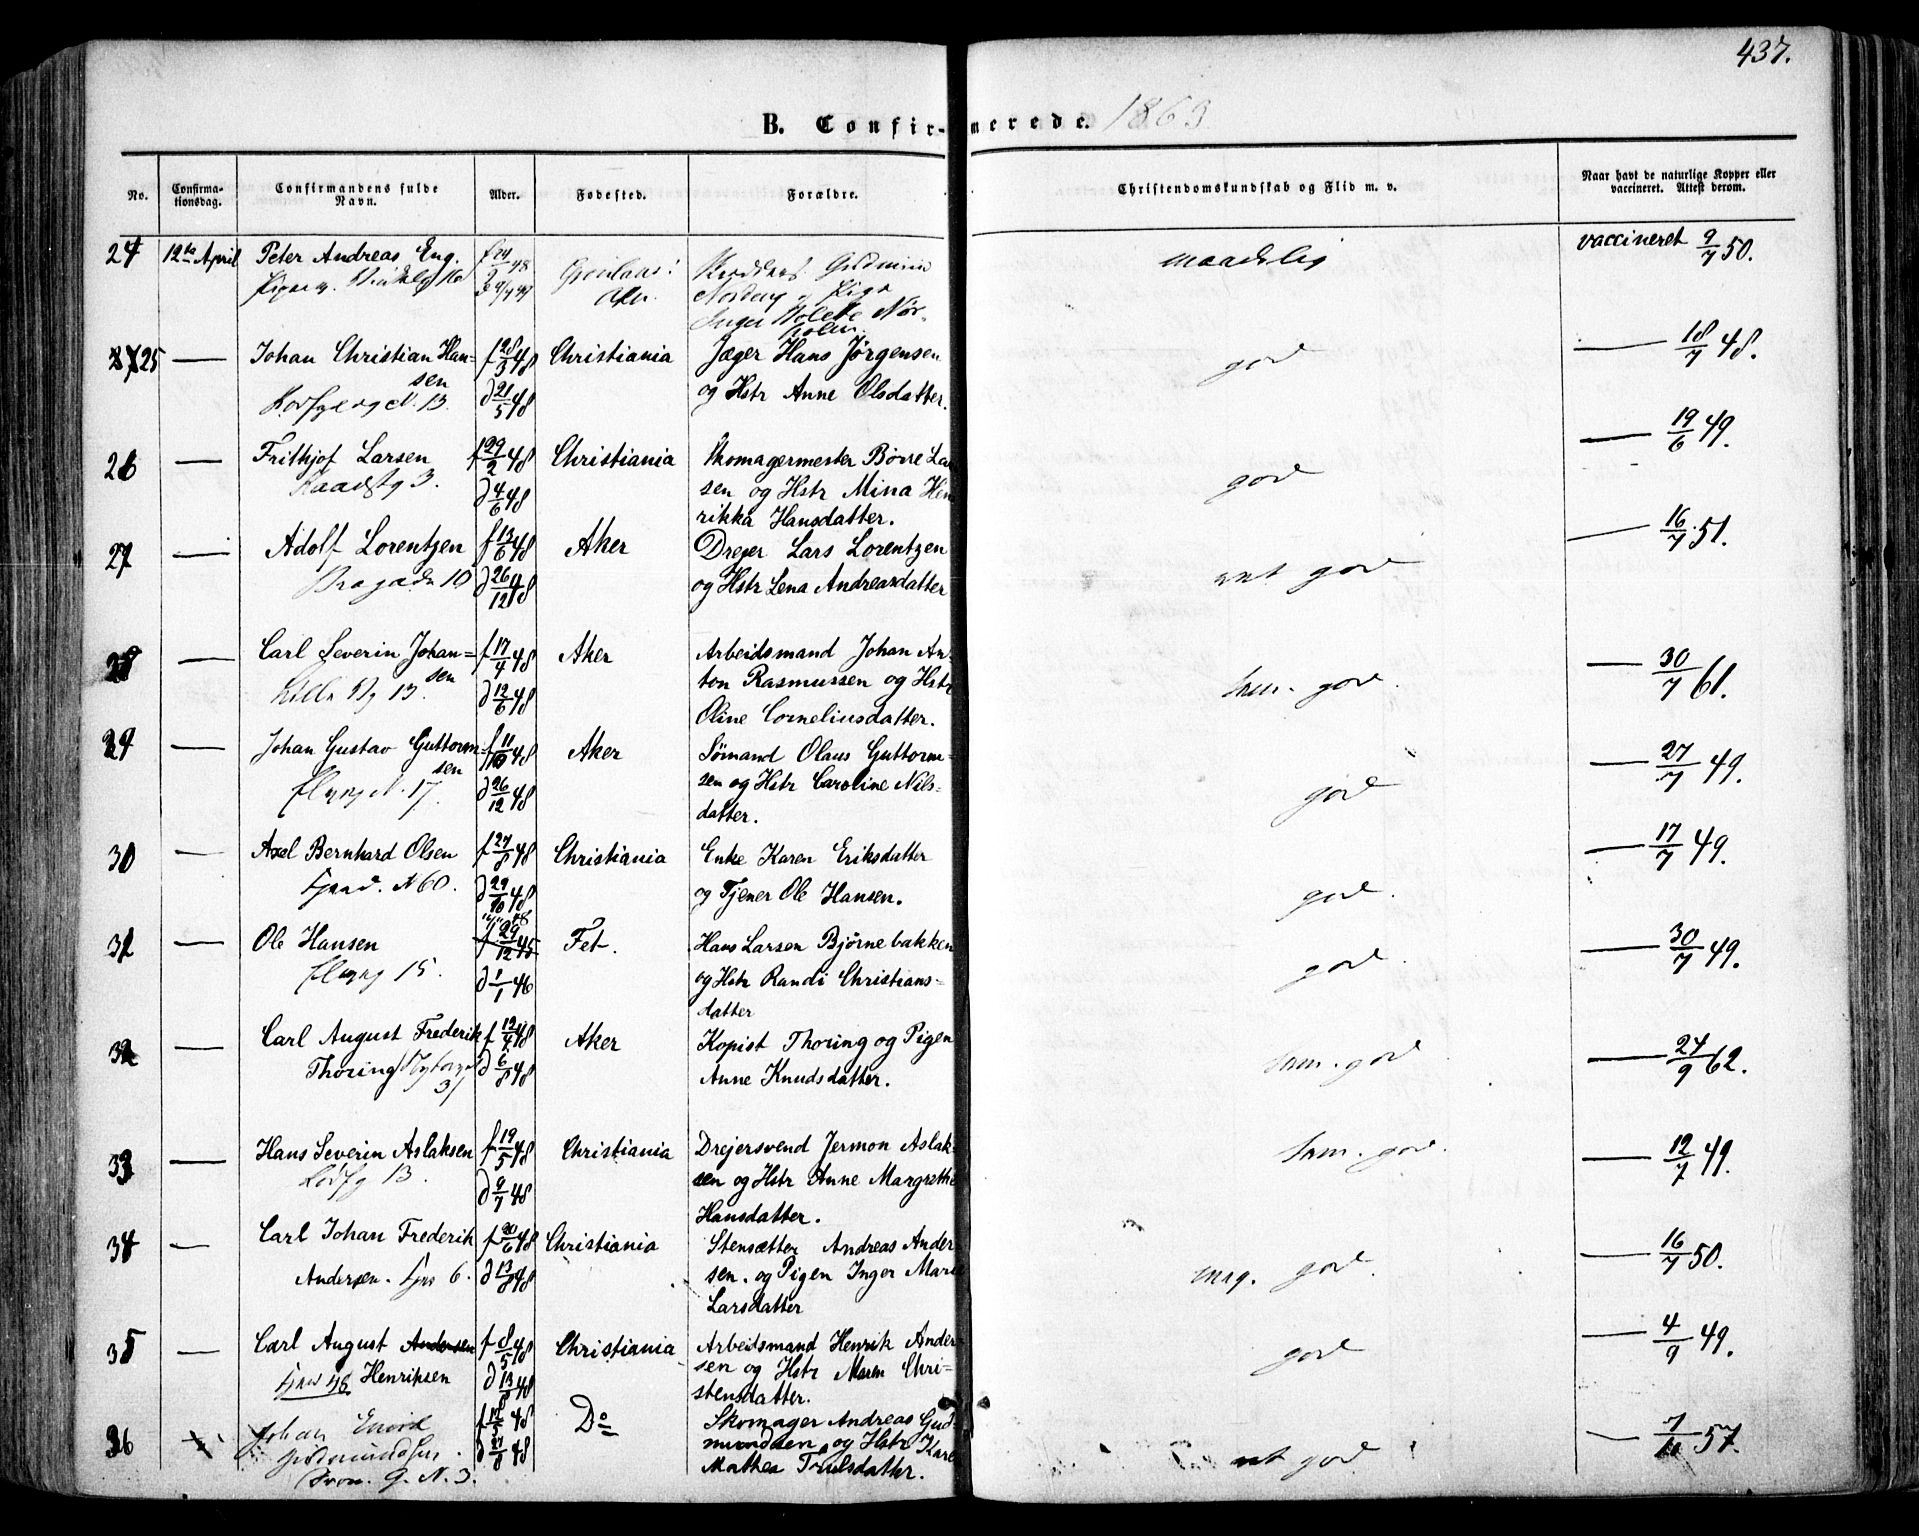 437.
B. Confirmerede. 1863
No. Confirmationsdag. Confirmandens fulde Navn. Alder. Fødested. Forældre. Christendomskundskab og Flid m. v. Naar havt de naturlige Kopper eller vaccineret. Attest derom.
24 12te April Peter Andreas Eng. maadelig vaccineret 9/7 50.
25 — Johan Christian Han= f 28/3 48 Christiania Jæger Hans Jørgensen god — 18/7 48.
sen N. 13. d 21/5 48 og Hstr Anne Olsdatter.
26 — Frithjof Larsen f 29/2 48 Christiania Skomagermester Børre Lar god — 19/6 49.
3. d 4/6 48 sen og Hstr Mina Hen
rikka Hansdatter.
27 — Adolf Lorentzen f 13/6 48 Aker Dreyer Lars Lorentzen mt god — 16/7 51.
10 d 26/12 48 og Hstr Lena Andreasdatter
28 — Carl Severin Johan= f 17/4 48 Aker Arbeidsmand Johan An
sen 13. d 12/6 48 ton Rasmussen og Hstr tem. god. — 30/7 61.
Oline Corneliusdatter.
29 — Johan Gustav Guttorm= f 11/10 48 Aker Sømand Olaus Guttorm= — 27/7 49.
sen N. 17. d 26/12 48 sen og Hstr Caroline Nils= god
datter.
30 — Axel Bernhard Olsen f 27/8 48 Christiania Enke Karen Eriksdatter — 17/7 49.
N 60. d 29/10 48 og Tjener Ole Hansen. god.
31 — Ole Hansen f 29/12 45 Fet. Hans Larsen Bjørnebakken god. — 30/7 49.
15. d 1/1 46 og Hstr Randi Christians=
datter
32 — Carl August Frederik f 12/4 48 Aker Kopist Thoring og Pigen tem. god — 24/9 62.
Thoring 31 d 6/8 48 Anne Knudsdatter.
33 — Hans Severin Aslaksen f 19/5 48 Christiania Drejersvend Jermon Aslak= tem. god. — 12/7 49.
13. d 9/7 48 sen og Hstr Anne Margrethe
Hansdatter.
34 — Carl Johan Frederik f 20/6 48 Christiania Stensætter Andreas Ander — 16/7 50.
Andersen. 6. d 13/8 48 sen. og Pigen Inger Marie meg. god.
Larsdatter
35 — Carl August Andersen f 8/5 48 Christiania Arbeidsmand Henrik Ander god — 4/9 49.
48 Henriksen d 13/8 48 sen og Hstr Maren Chri=
stensdatter.
36 Johan 48 Do Skomager Andreas Gud= — 7/11 57.
Gudmundsen. d 27/8 48 mundsen og Hstr Kare mt god
N. 3. Mathea Trulsdatter.